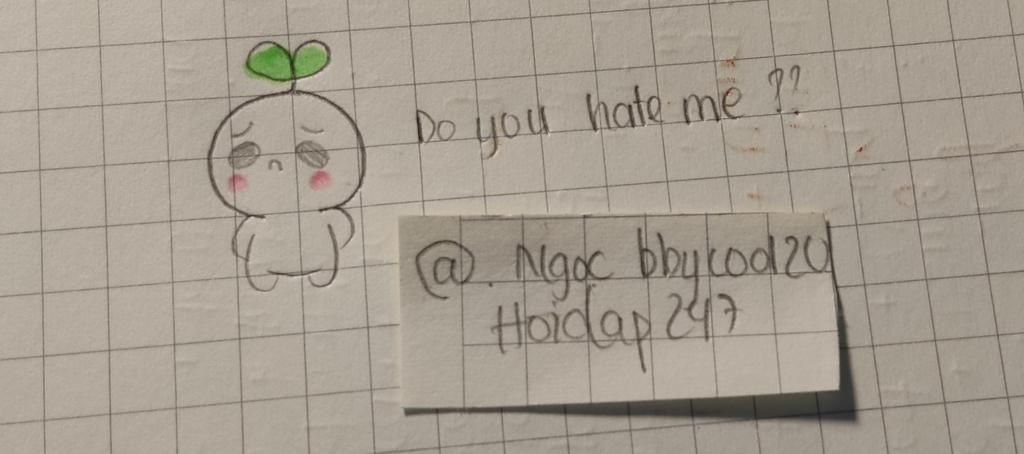 Do you hate me ??
@. Ngọc bbycod20
Hoidap 247